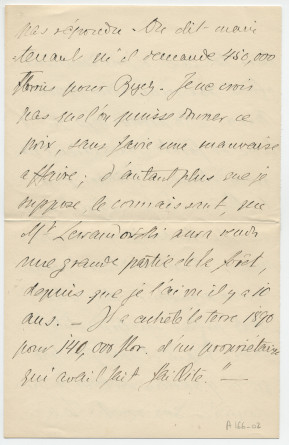 pas répondre. On dit main
tenant qu'il demande 450,000
florins pour . Je ne crois
pas que l'on puisse donner ce
prix, sans faire une mauvaise
affaire; d'autant plus que je
suppose, le connaissant, que
Mr Lewandowski aura vendu
une grande partie de la forêt,
depuis que je l'ai vu il y a 10
ans. — Il a acheté la terre 1890
pour 140,000 flor. d'un propriétaire
qui avait fait faillite." —
A 166-02